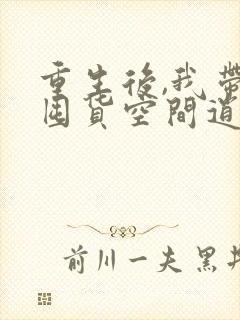 重生後,我帶
囤貨空間道
前川一夫黑